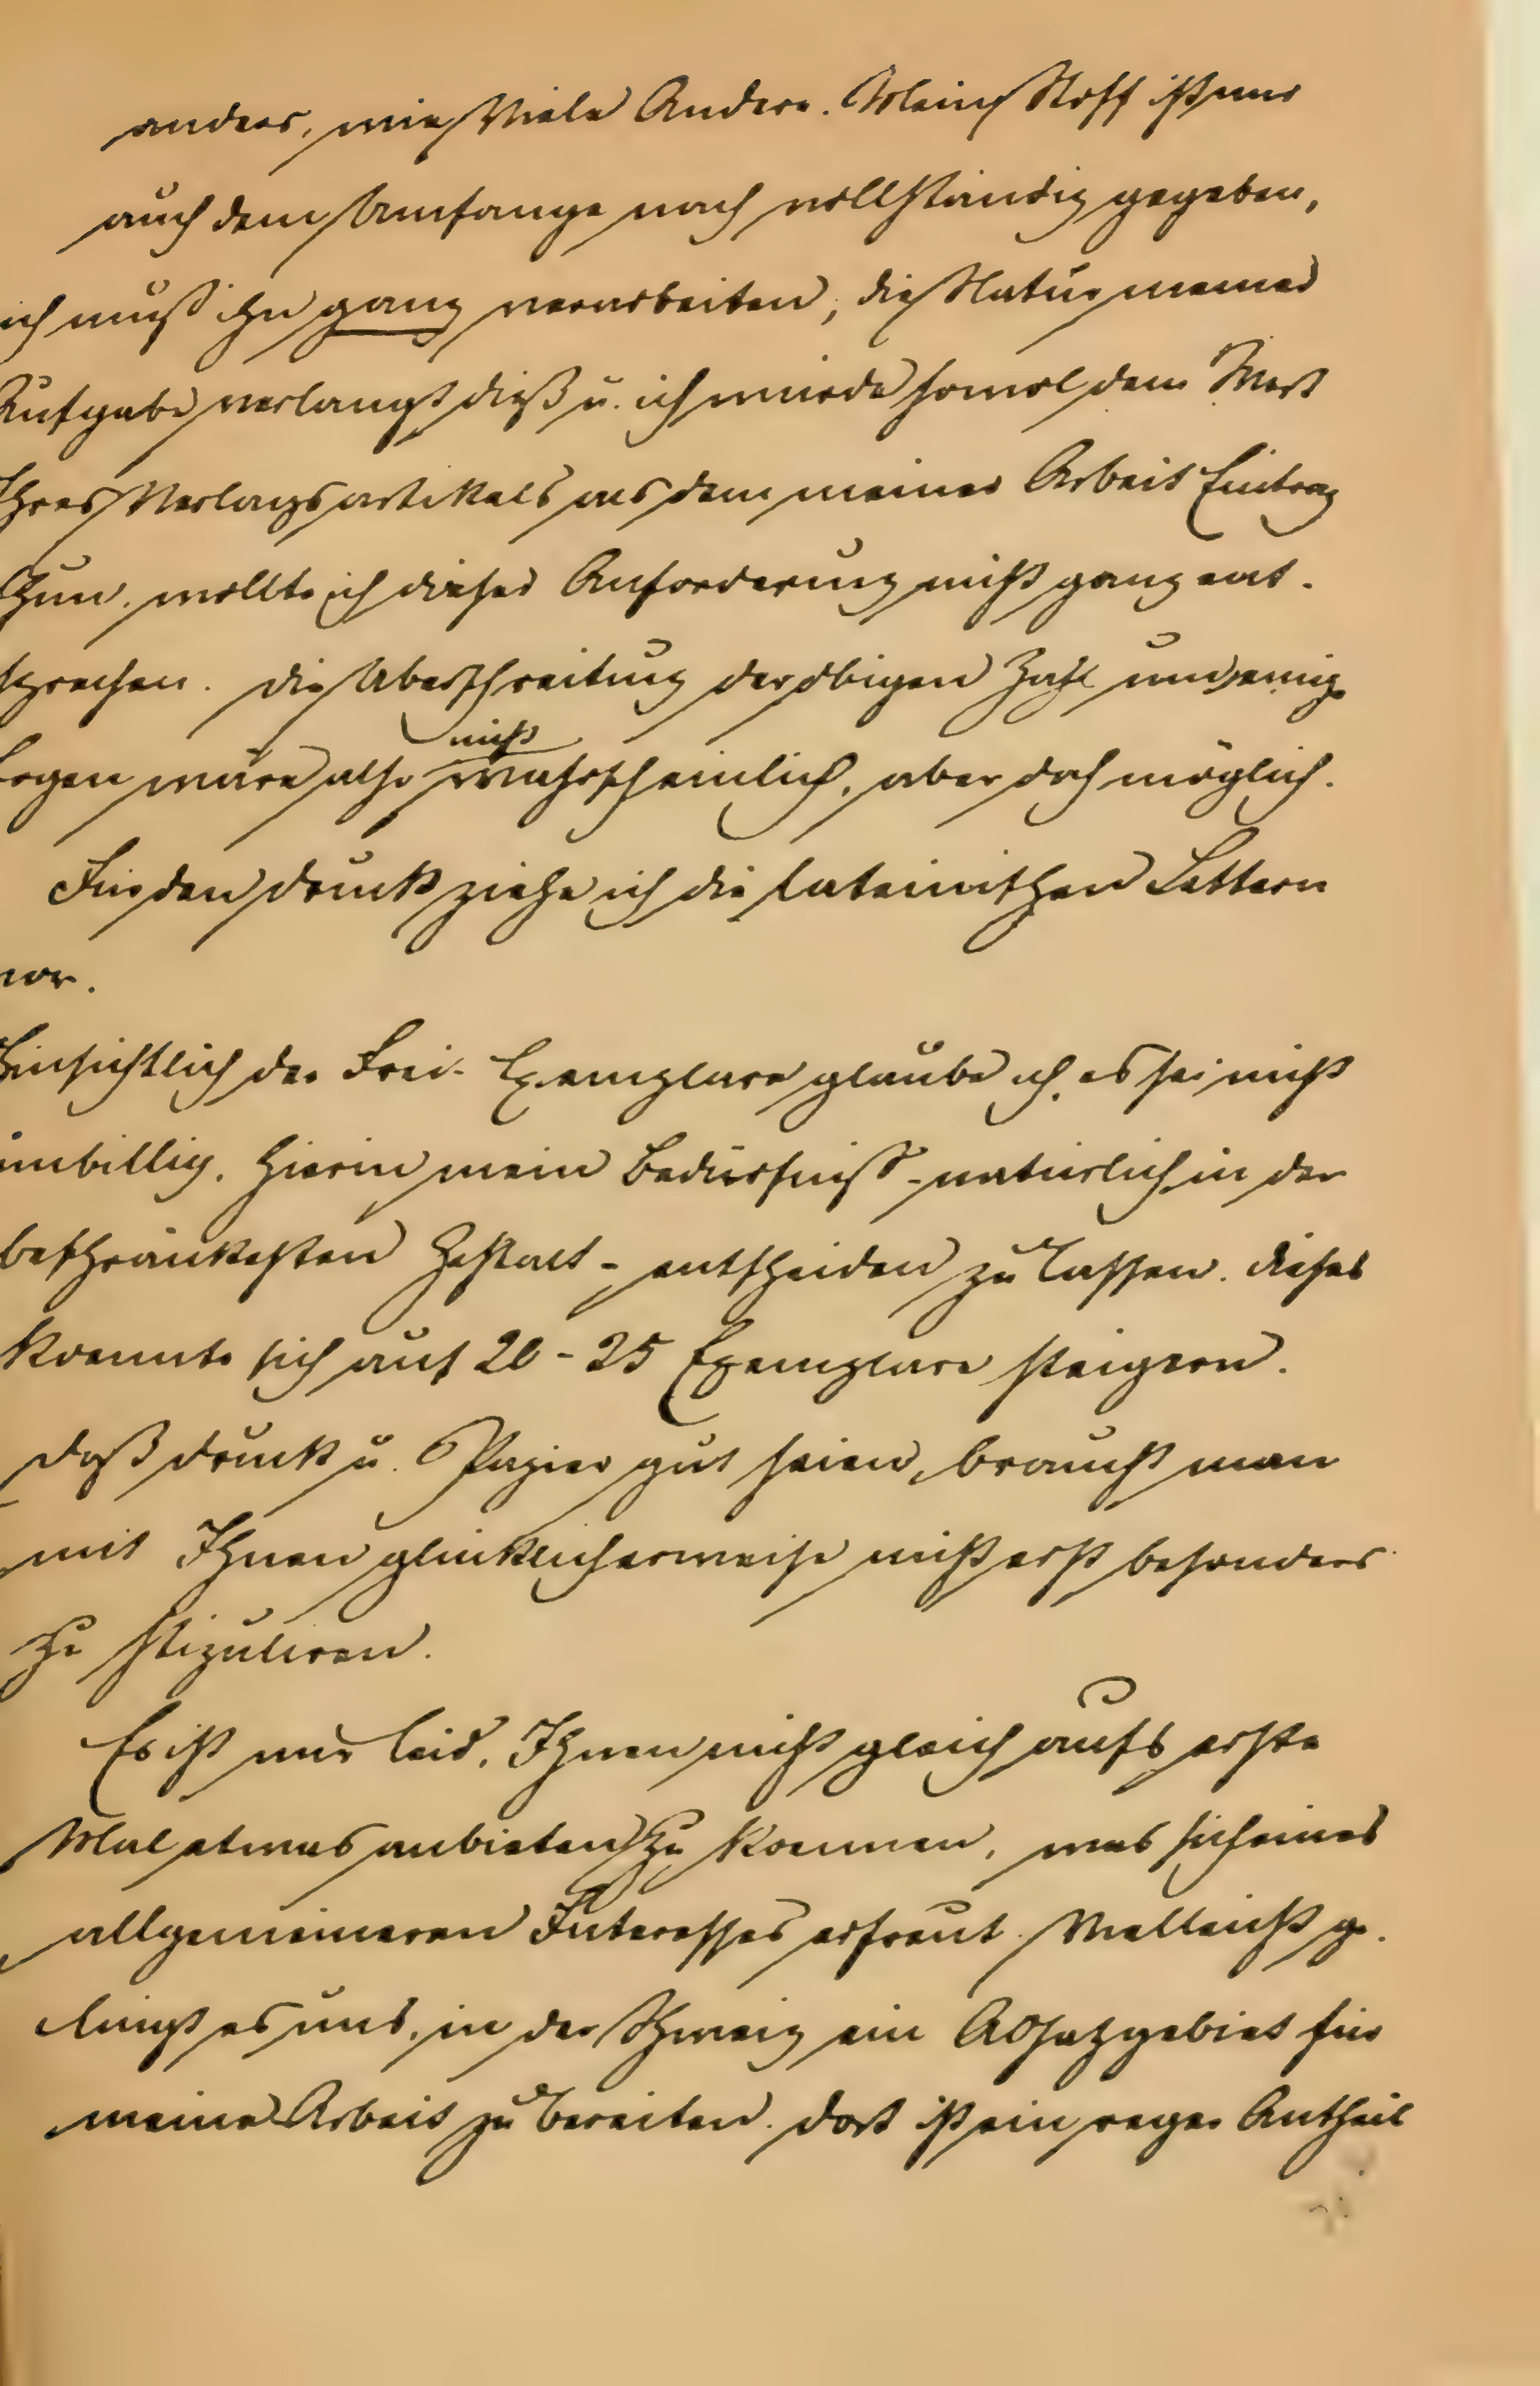 anders, wie Viele Andere. Mein Stoff ist mir
auch dem Umfange nach vollständig gegeben,
ich muß ihn ganz verarbeiten; die Natur meiner
Aufgabe verlangt dieß u. ich würde sowol dem Wert
Ihres Verlagsartikels als dem meiner Arbeit Eintrag
thun, wollte ich dieser Anforderung nicht ganz ent-
sprechen. Die Überschreitung der obigen Zahl um wenig
Bogen wäre also nicht wahrscheinlich, aber doch möglich.
Für den Druck ziehe ich die lateinischen Lettern
vor.
Hinsichtlich der Frei-Exemplare glaube ich, es sei nicht
unbillig, hierin mein Bedürfniß - natürlich in der
beschränktesten Gestalt - entscheiden zu lassen. Dieses
koennte sich auf 20-25 Exemplare steigern.
Daß Druck u. Papier gut seien, braucht man
mit Ihnen glücklicherweise nicht erst besonders
zu stipuliren.
Es ist mir leid, Ihnen nicht gleich aufs erste
Mal etwas anbieten zu koennen, was sich eines
allgemeineren Interesses erfreut. Vielleicht ge-
lingt es uns, in der Schweiz ein Absazgebiet für
meine Arbeit zu bereiten. Dort ist ein reger Antheil